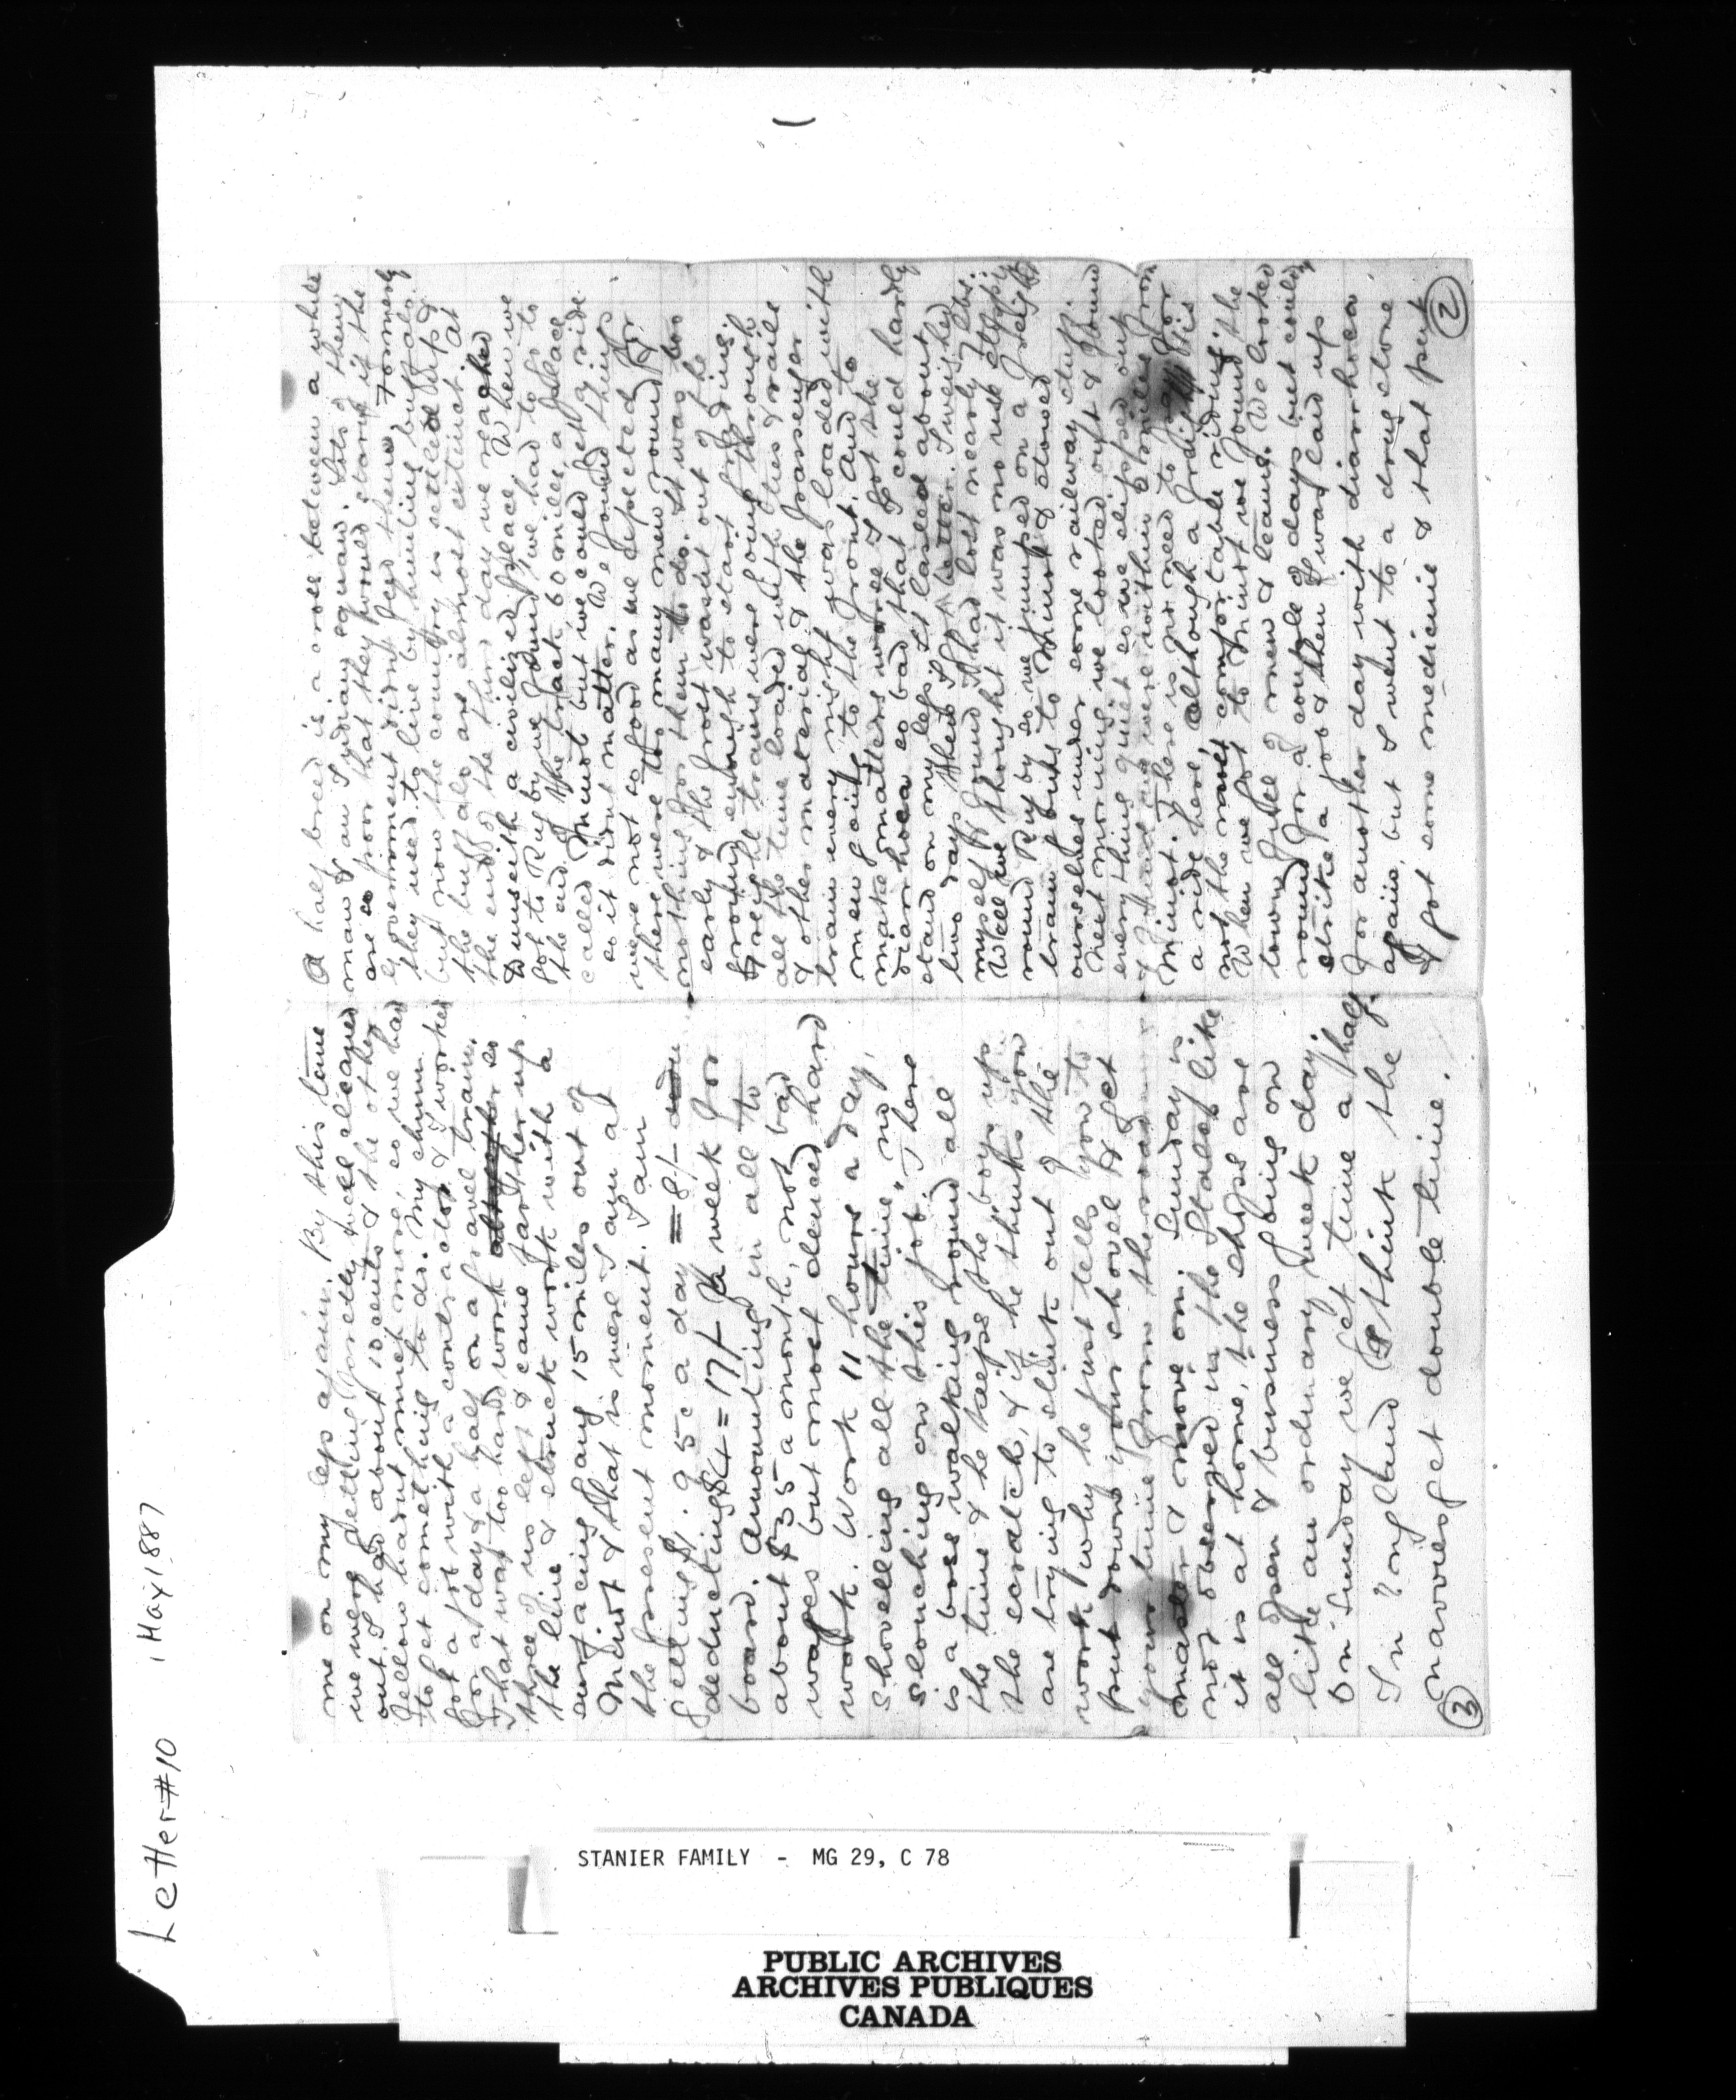 Letter #10 1 May 1887
A half breed is a cross between a white
man & an Indian squaw. Lots of them
are so poor that they would starve if the
government didnt feed them. Formerly
they used to live by hunting buffalo
but now the country is settled up &
the buffalo are almost extinct. At
the end of the third day we reached
Dunseith a civilized place. When we
got to Rugby we found we had to go to
the end of the track 60 miles, a place
called Minot but we could get a ride
so it didnt matter. We found things
were not so good as we expected for
there were too many men round &
nothing for them to do. It was too
early & the frost wasnt out of the
ground enough to start grading
Freight trains were going through
all the time loaded with ties & rails
& other material & the passenger
train every night was loaded with
men going to the front. And to
make matters worse I got the
diarrhoea so bad that I could hardly
stand on my legs. It lasted about
two days then I felt better. I weighed
myself & found I had lost nearly lbs.
Well we thought it was no use stopping
round Rugby so we jumped on a freight
train bound to Minot & stowed
ourselves under some railway stuff.
Next morning we looked out & found
every thing quiet so we slipped out
& found we were within a mile from
Minot. There is no need to pay for
a ride here, although a ride like this is
not the most comfortable riding.
When we got to Minot we found the
town full of men & teams. We looked
round for a couple of days but couldn't
strike a job & then I was laid up
for another day with diarrhoea
again, but I went to a drug store
& got some medicine & that put
2
me on my legs again. By this time
we were getting pretty well cleaned
out. I had about 10 cents & the other
fellow hadnt much more, so we had
to get something to do. My chum
got a job with a contractor & I worked
for a day & a half on a gravel train.
That was too hard work so
three of us left & came farther up
the line & struck work with a
surfacing gang 15 miles out of
Minot & that is were I am at
the present moment. I am
getting $1.95c a day = 8/-
deducting $4 = 17/- a week for
board. Amounting in all to
about $35 a month, not bad
wages but most darned hard
work. Work 11 hours a day,
shovelling all the time, no
slouching on this job. There
is a boss walking round all
the time & he keeps the boys up
the scratch, & if he thinks you
are trying to slink out of the
work why he just tells you to
put down your shovel & get
your time from the road
master & move on. Sunday is
not observed in the States like
it is at home, the shops are
all open & business going on
like an ordinary week day.
On Sunday we get time & half.
In England I think the
navvies get double time.
3
STANIER FAMILY - MG 29, C 78
PUBLIC ARCHIVES
ARCHIVES PUBLIQUES
CANADA